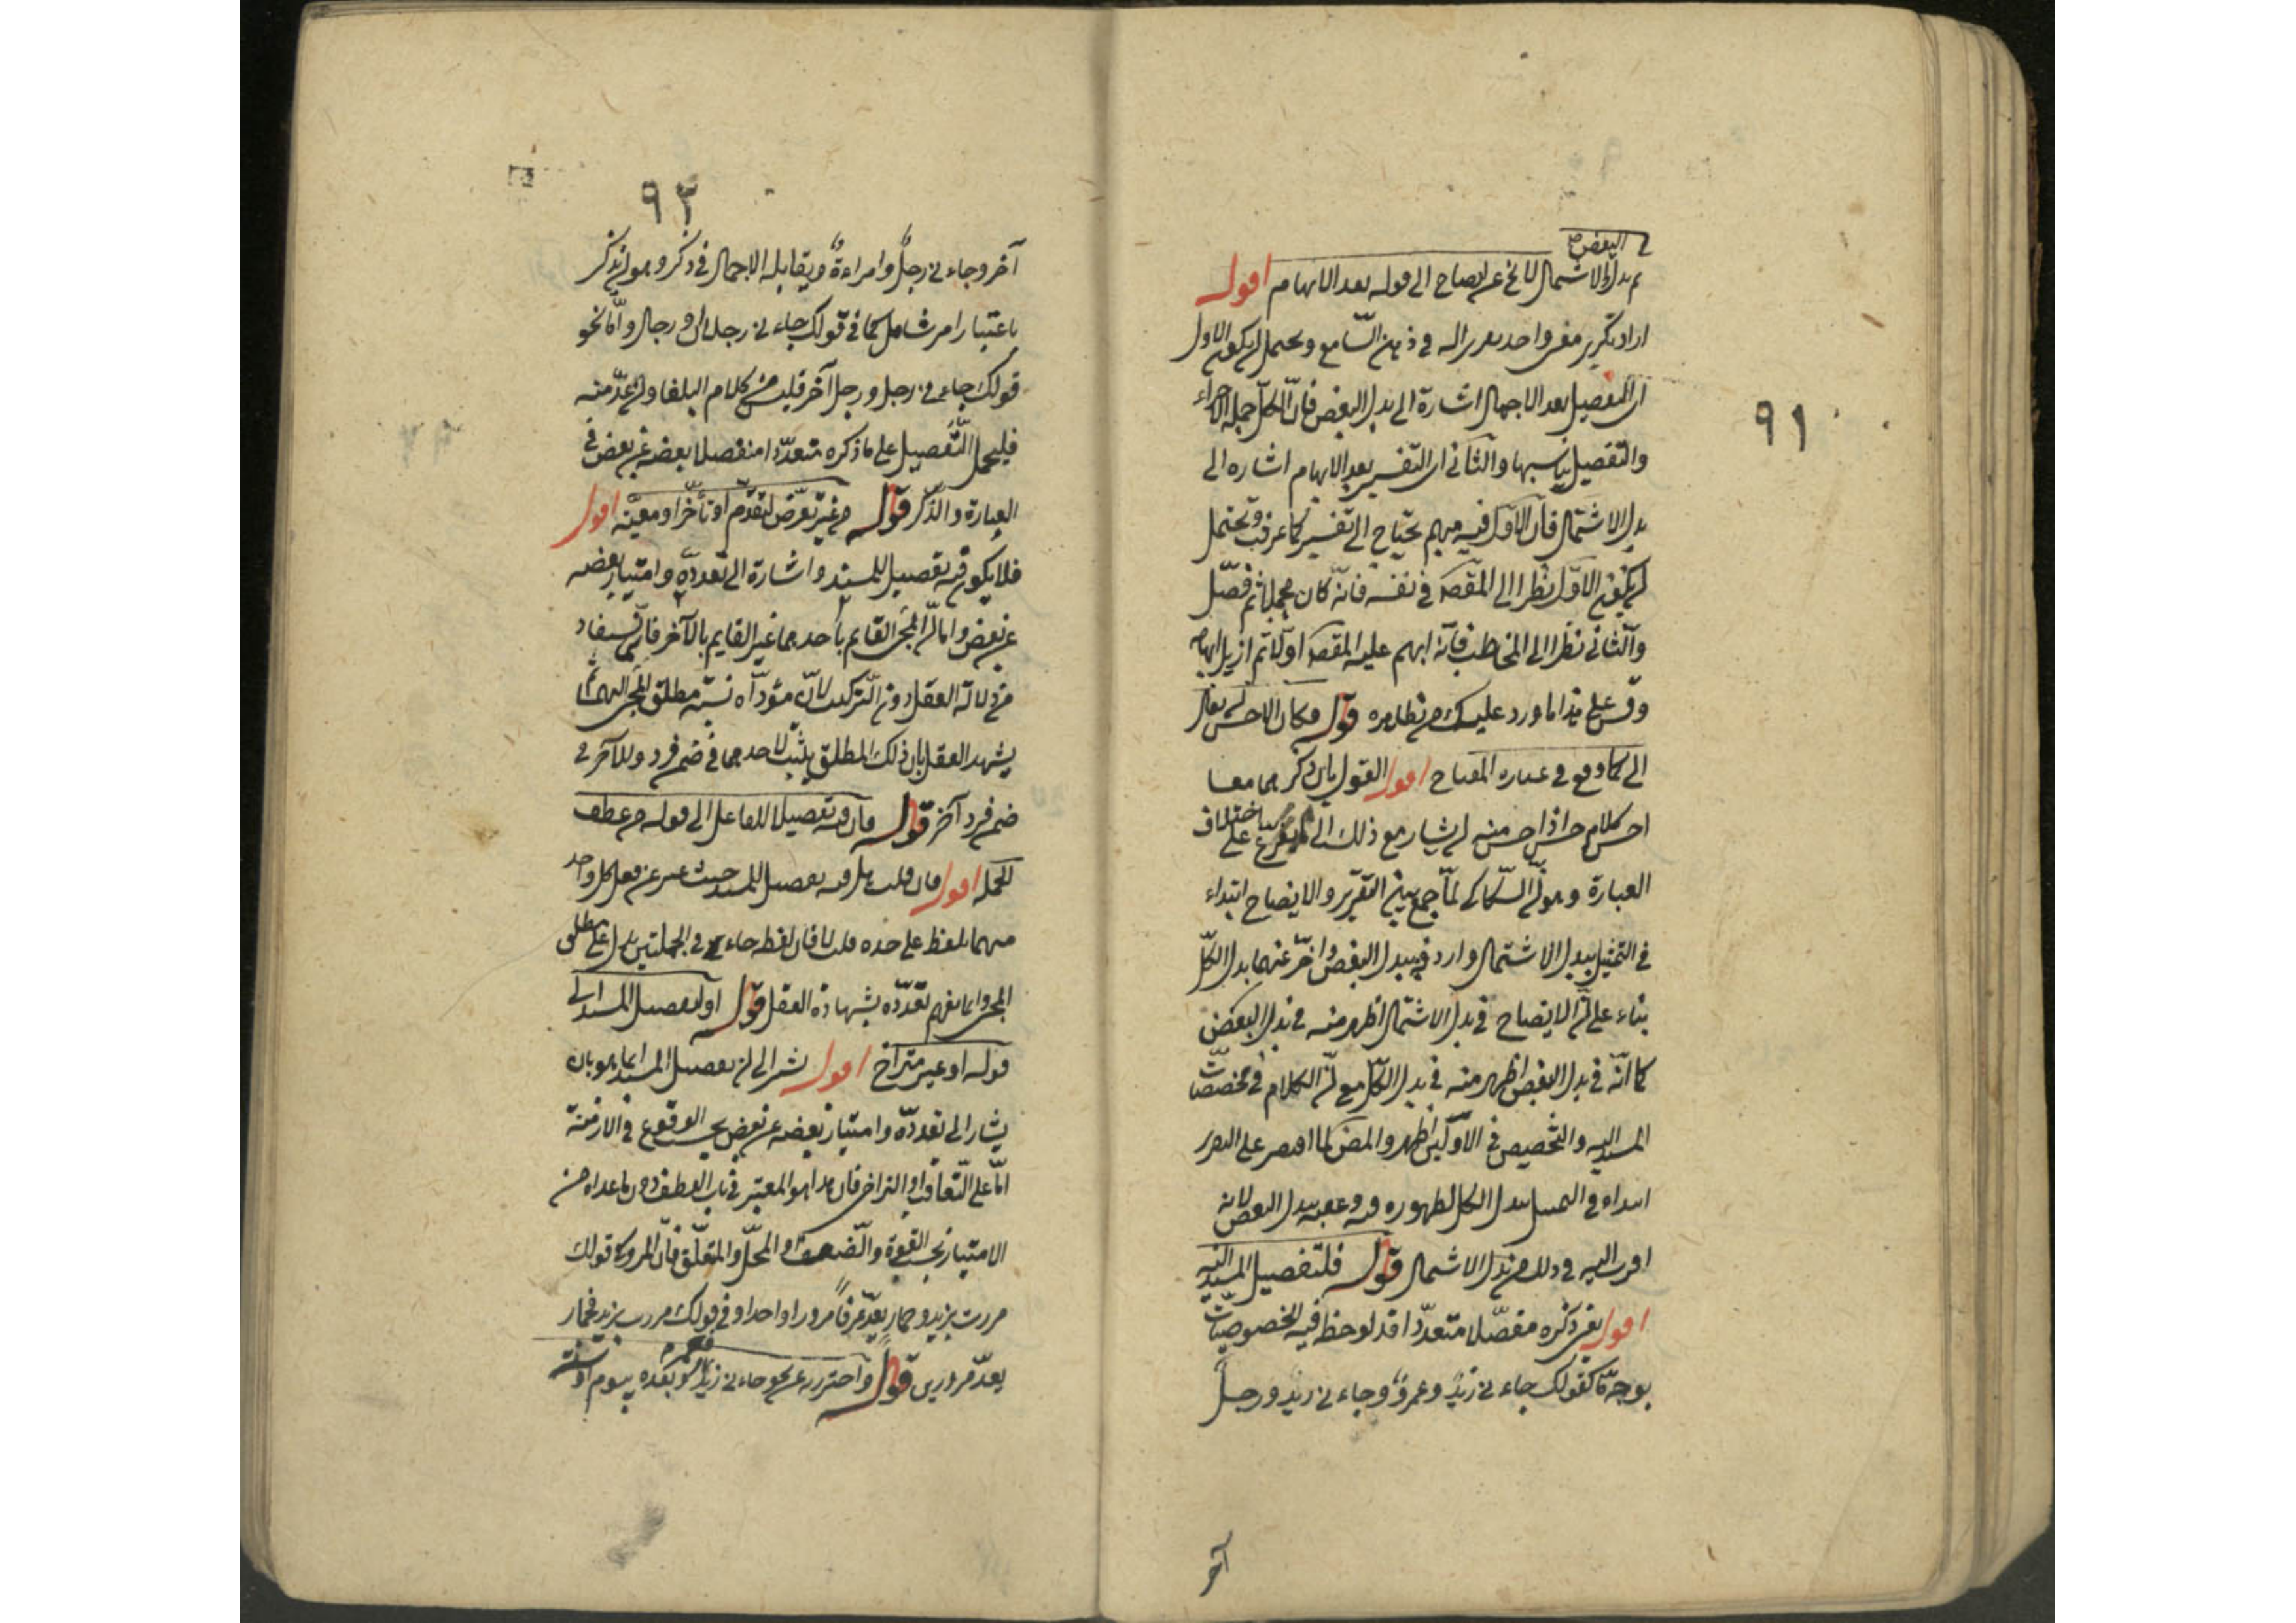 ٩١
البعض
ثم بدل الاشتمال لا يخ عن ايضاح الى قوله بعد الابهام اقول
اراد بتكرير معنى واحد تقريره في ذهن السامع ويحتمل ان يكون الاول
اى التفصيل بعد الاجمال اشارة الى بدل البعض فان الكل جملة الاجزاء
والتفصيل يناسبها والثانى اى التفسير بعد الابهام اشارة الى
بدل الاشتمال فان الاول فيه مبهم يحتاج الى تفسير كما عرفت ويحتمل
ان يكون الاول نظرا الى المقصد في نفسه فانه كان مجملا ثم فصل
والثانى نظرا الى المخاطب فانه ابهم عليه المقصد اولا ثم ازيل ابهامه
وقس على هذا ما ورد عليك من نظايره قوله وكان الاحسن ان يقال
الى كما وقع في عبارة المفتاح اقول القول بان ذكرهما معا
احسن كلام حسن اذ احسن منه ان يشار مع ذلك الى باختلاف
العبارة وهو ان السكاكى لما جمع بين التقرير والايضاح ابتداء
في التمثيل ببدل الاشتمال واردفه ببدل البعض واخر عنهما بدل الكل
بناء على ان الايضاح في بدل الاشتمال اظهر منه في بدل البعض
كما انه في بدل البعض اظهر منه في بدل الكل مع ان الكلام في مخصصات
المسند اليه والتخصيص في الاولين اظهر والمص لما اقتصر على التقرير
ابتداء في التمثيل ببدل الكل لظهوره فيه وعقبه ببدل البعض لانه
اقرب اليه في ذلك من بدل الاشتمال قوله فلتفصيل المسند اليه
اقول يعنى ذكره مفصلا متعددا قد لوحظ فيه الخصوصيات
بوجه ما كقولك جاءنى زيد وعمرو وجاءنى زيد ورجل
آخر
٩٢
آخر وجاءنى رجل وامراءة ويقابله الاجمال في ذكره وهو ان تذكر
باعتبار امر شامل كما في قولك جاءنى رجلان او رجال واما نحو
قولك جاءنى رجل ورجل آخر فليس من كلام البلغا وان عد منه
فليحمل التفصيل على ما ذكره متعددا منفصلا بعضه عن بعض في
العبارة والذكر قوله من غير تعرض لتقدم او تأخر او معية اقول
فلا يكون فيه تفصيل للمسند واشارة الى تعدده وامتياز بعضه
عن بعض واما ان المجئ القايم بأحدهما غير القايم بالآخر فانما يستفاد
من دلالة العقل دون التركيب لان مؤداه نسبة مطلق المجئ اليهما ثم
يشهد العقل بان ذلك المطلق يثبت لاحدهما في ضمن فرد وللآخر في
ضمن فرد آخر قوله فان فيه تفصيلا للفاعل الى قوله من عطف
الجملة اقول فان قلت هل فيه تفصيل للمسند حيث عبر عن فعل كل واحد
منهما بلفظ على حده قلت لا فان لفظ جاء في الجملتين يدل على مطلق
المجئ وانما يفهم تعدده بشهادة العقل قوله او لتفصيل المسند الى
قوله او غير متراخ اقول يشير الى ان تفصيل المسند انما هو بان
يشار الى تعدده وامتياز بعضه عن بعض بحسب الوقوع في الازمنة
اما على التعاقب او التراخى فان هذا هو المعتبر في باب العطف دون ما عداه من
الامتياز بحسب القوة والضعف او المحل والمتعلق فان المرور في قولك
مررت بزيد وحمار يعد عرفا مرورا واحدا وفي قولك مررت بزيد فحمار
يعد مرورين قوله واحترز به عن نحو جاءنى زيد وعمرو بعده بيوم او سنة